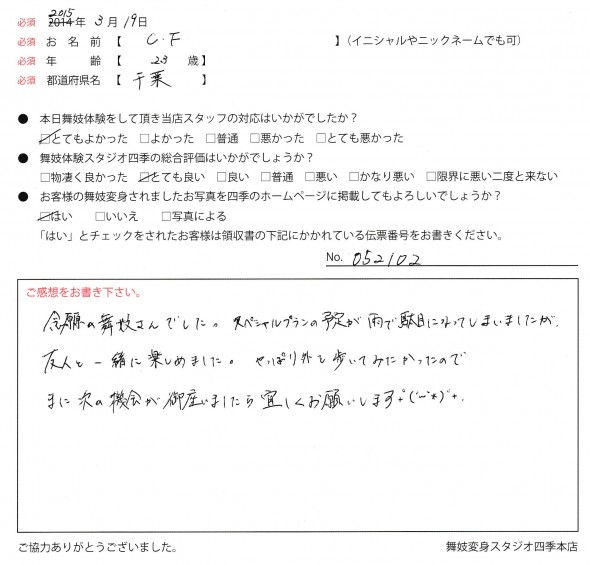 2015
必須 2014年 3月19日
必須 お 名 前 【 C.F 】(イニシャルやニックネームでも可)
必須 年 齢 【 23 歳】
必須 都道府県名 【 千葉 】
● 本日舞妓体験をして頂き当店スタッフの対応はいかがでしたか?
☑とてもよかった □よかった □普通 □悪かった □とても悪かった
● 舞妓体験スタジオ四季の総合評価はいかがでしょうか?
□物凄く良かった ☑とても良い □良い □普通 □悪い □かなり悪い □限界に悪い二度と来ない
● お客様の舞妓変身されましたお写真を四季のホームページに掲載してもよろしいでしょうか?
☑はい □いいえ □写真による
「はい」とチェックをされたお客様は領収書の下記にかかれている伝票番号をお書きください。
No. 052102
ご感想をお書き下さい。
念願の舞妓さんでした。スペシャルプランの予定が雨で駄目になってしまいましたが、
友人と一緒に楽しめました。やっぱり外も歩いてみたかったので
また次の機会が御座いましたら宜しくお願いします+゚(*´-`*)゚+.
ご協力ありがとうございました。 舞妓変身スタジオ四季本店